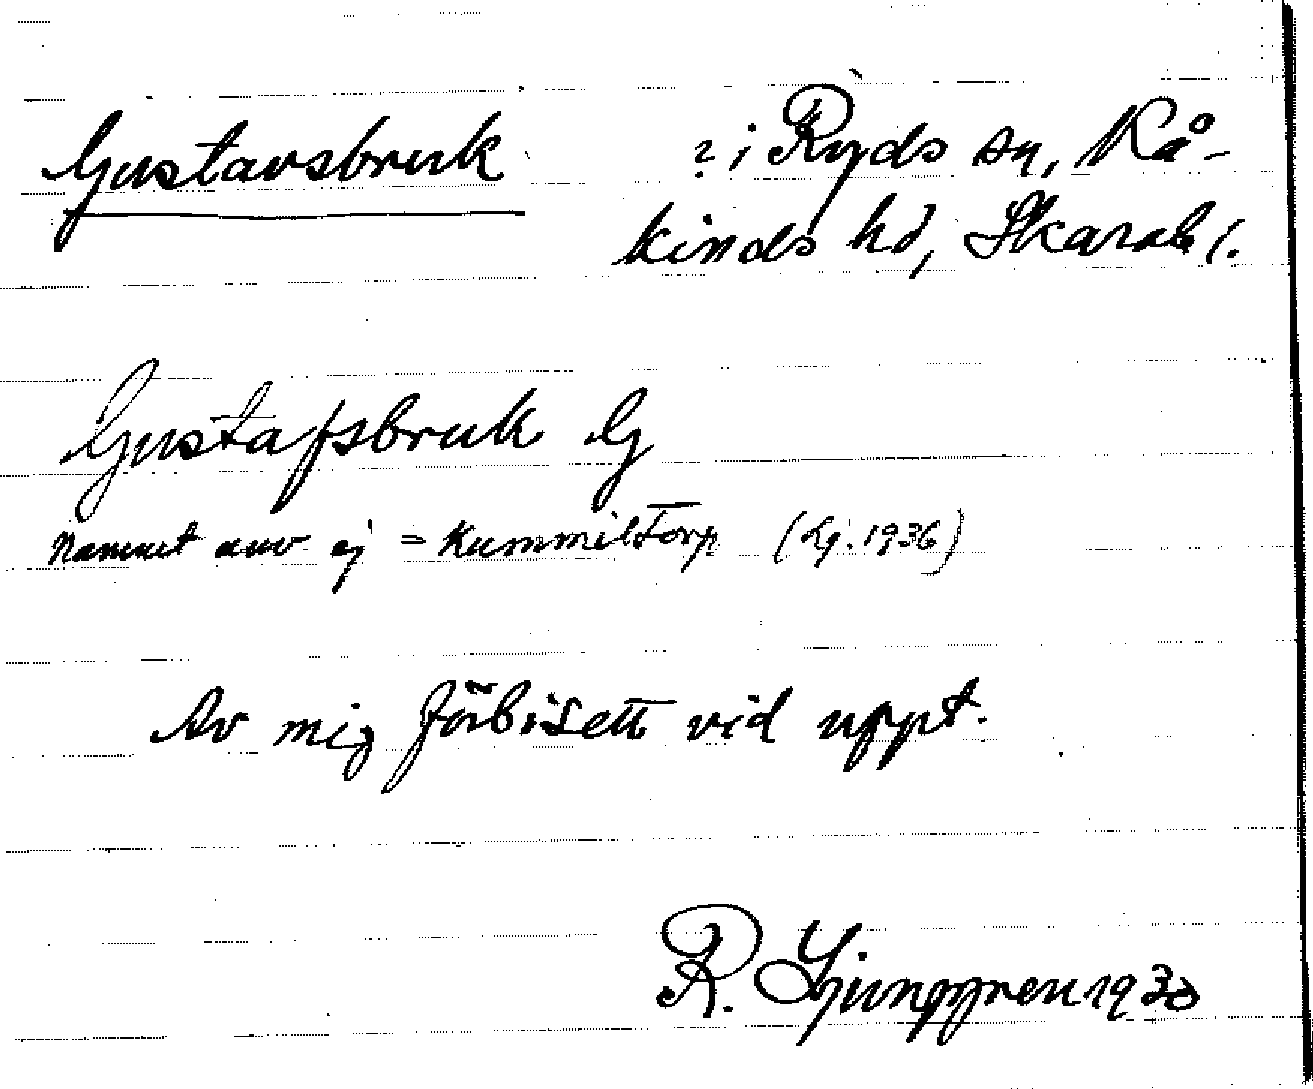 Gustavsbruk ? i Ryds sn, Kå-
kinds hd, Skarab l.
Gustafsbruk G
Namnet anv ej = Kummiltorp (Lj. 1936)
Av mig förbisett vid uppt.
R. Ljunggren 1930